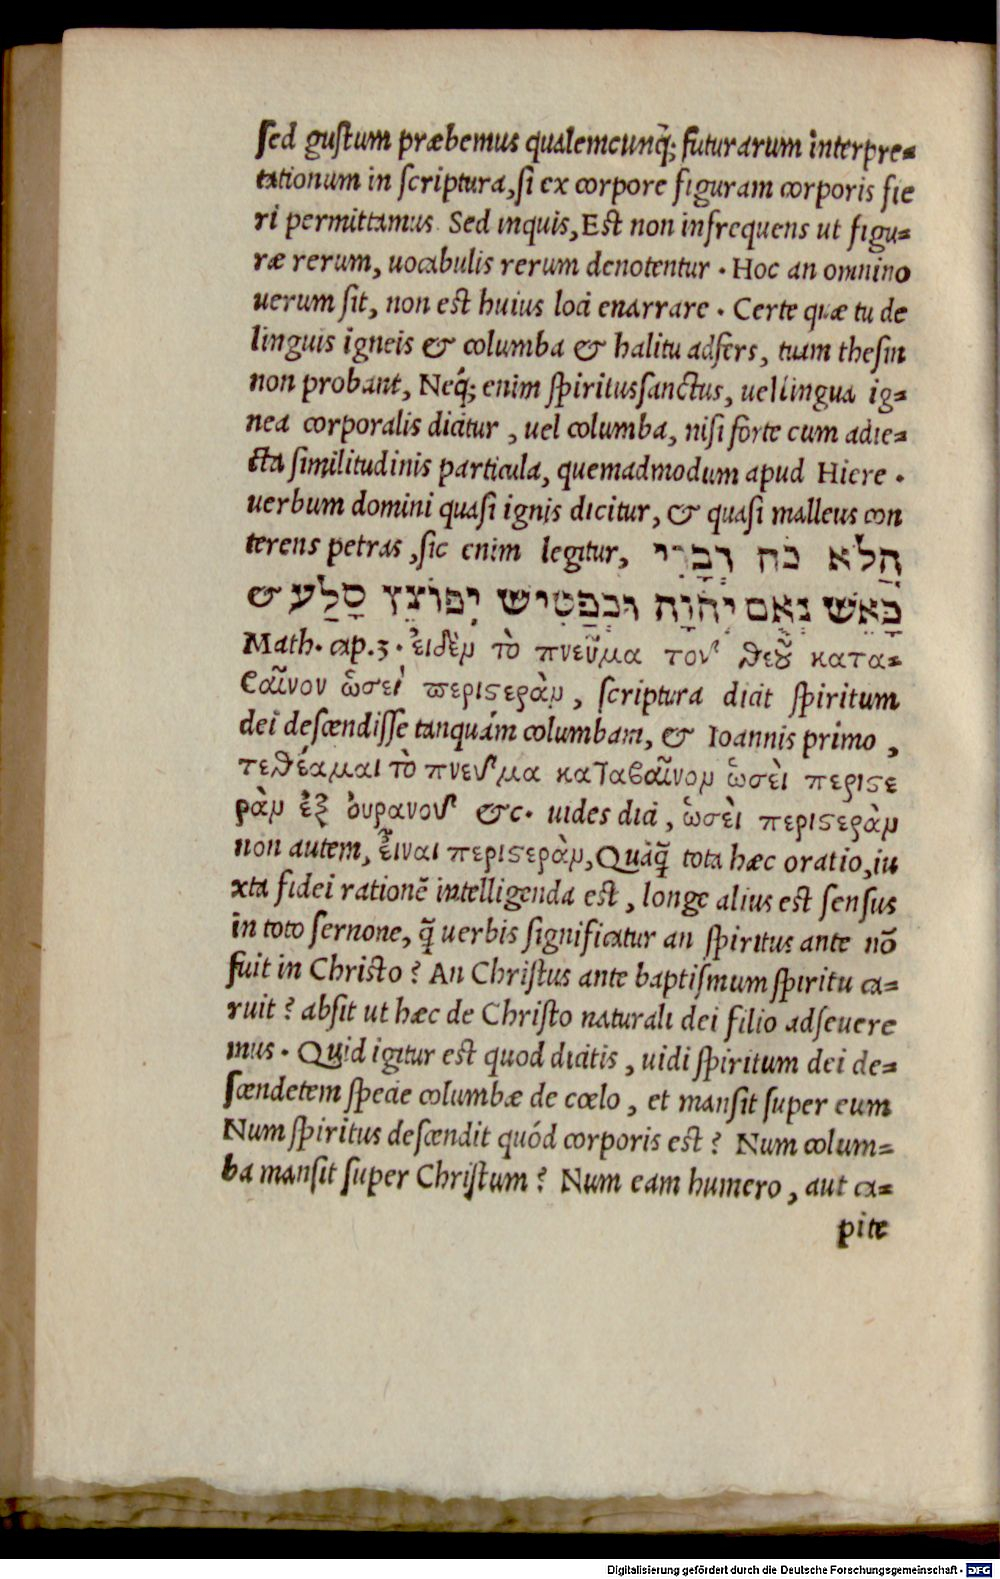 sed gustum præbemus qualemcunq̃; futurarum interpre=
tationum in scriptura, si ex corpore figuram corporis fie
ri permittamus. Sed inquis, Est non infrequens ut figu=
ræ rerum, uocabulis rerum denotentur. Hoc an omnino
uerum sit, non est huius loci enarrare. Certe quæ tu de
linguis igneis & columba & halitu adfers, tuam thesin
non probant, Neq́; enim spiritussanctus, uel lingua ig=
nea corporalis dicitur, uel columba, nisi forte cum adie=
cta similitudinis particula, quemadmodum apud Hiere.
uerbum domini quasi ignis dicitur, & quasi malleus con
terens petras, sic enim legitur, הֲלֹא כֹה דְבָרִי
כָּאֵשׁ נְאֻם יְהֹוָה וּכְפַטִּישׁ יְפוֹצֵץ סָלַע &
Math. cap.3. ἐιδεν τὸ πνεῦμα τοῦ θεοῦ κατα=
βαῖνον ὡσεὶ περιστερὰν, scriptura dicit spiritum
dei descendisse tanquám columbam, & Ioannis primo,
τεθέαμαι τὸ πνεῦμα καταβαῖνον ὡσεὶ περιστε
ρὰν ἐξ ὀυρανοῦ &c. uides dici, ὡσεὶ περιστερὰν
non autem, ἐ͂ιναι περιστερὰν, Quãq̃ tota hæc oratio, iu
xta fidei rationẽ intelligenda est, longe alius est sensus
in toto sermone, q̃ uerbis significatur an spiritus ante nõ
fuit in Christo? An Christus ante baptismum spiritu ca=
ruit? absit ut hæc de Christo naturali dei filio adseuere
mus. Quid igitur est quod dicitis, uidi spiritum dei de=
scendetem specie columbæ de cœlo, et mansit super eum
Num spiritus descendit quód corporis est? Num colum=
ba mansit super Christum? Num eam humero, aut ca=
pite
Digitalisierung gefördert durch die Deutsche Forschungsgemeinschaft - DFG